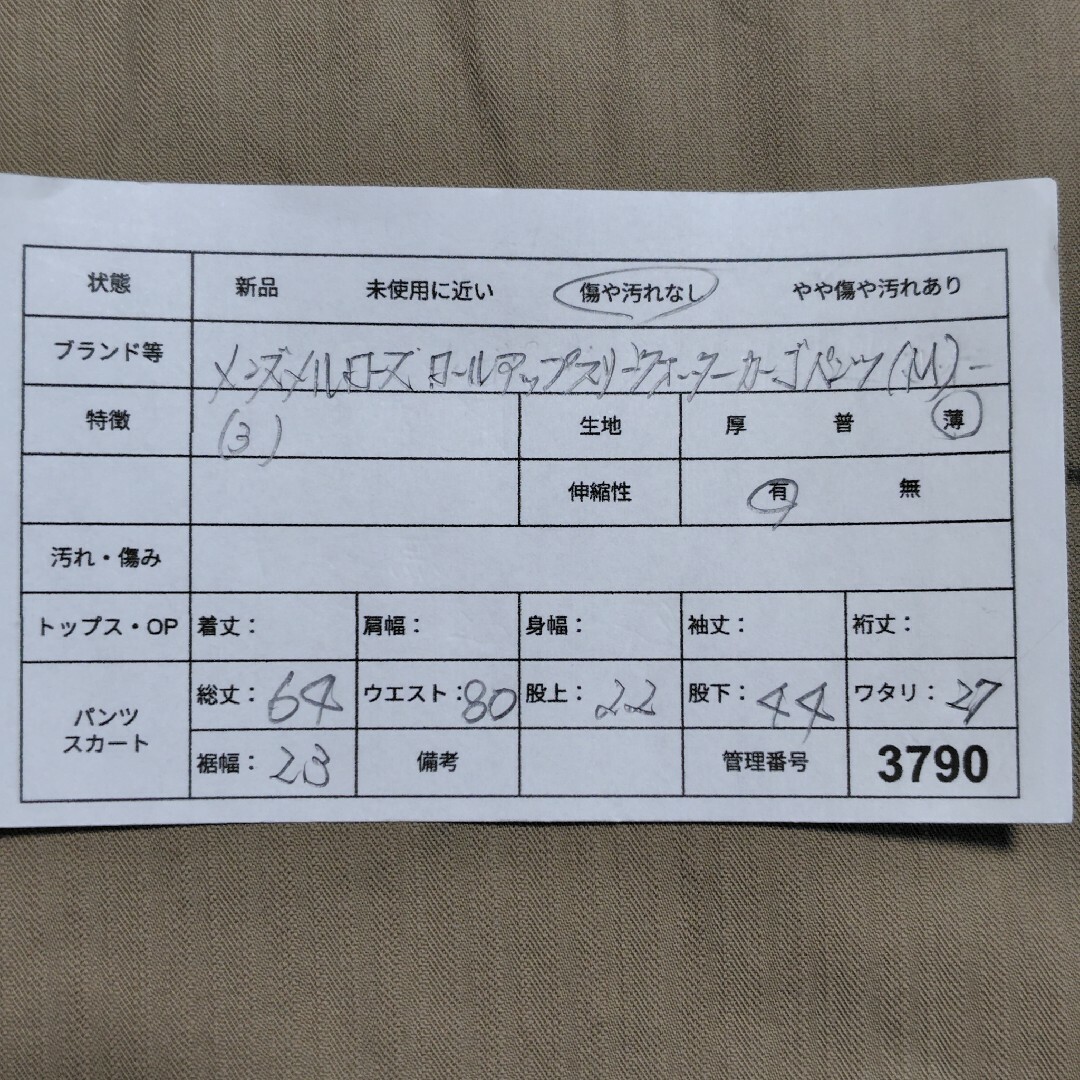 状態 新品 未使用に近い 傷や汚れなし やや傷や汚れあり
ブランド等 メンズメルローズ ロールアップスリークォーターカーゴパンツ(M)-
特徴 (3) 生地 厚 普 薄
伸縮性 有 無
汚れ・傷み
トップス・OP 着丈: 肩幅: 身幅: 袖丈: 裄丈:
パンツ スカート 総丈:64 ウエスト:80 股上:22 股下:44 ワタリ:27
裾幅:23 備考 管理番号 3790